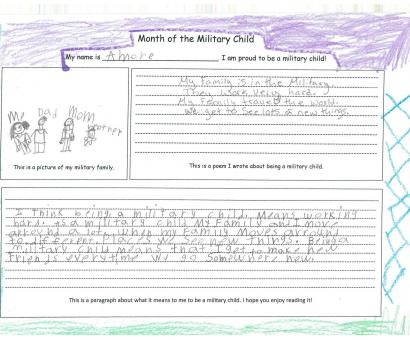 Month of the Military Child
My name is Amore I am proud to be a military child!
Me Dad Mom
This is a picture of my military family.
My Family is in the Military.
They work very hard.
My Family travels the world.
We get to see lots of new things.
This is a poem I wrote about being a military child.
I think being a military child. Means working
hard. As a military child My Family and I move
arround a lot. When my Family Moves arround
to different. Places we see new things. Being a
military child means that I get to make new
friends everytime we go somewhere new.
This is a paragraph about what it means to me to be a military child. I hope you enjoy reading it!